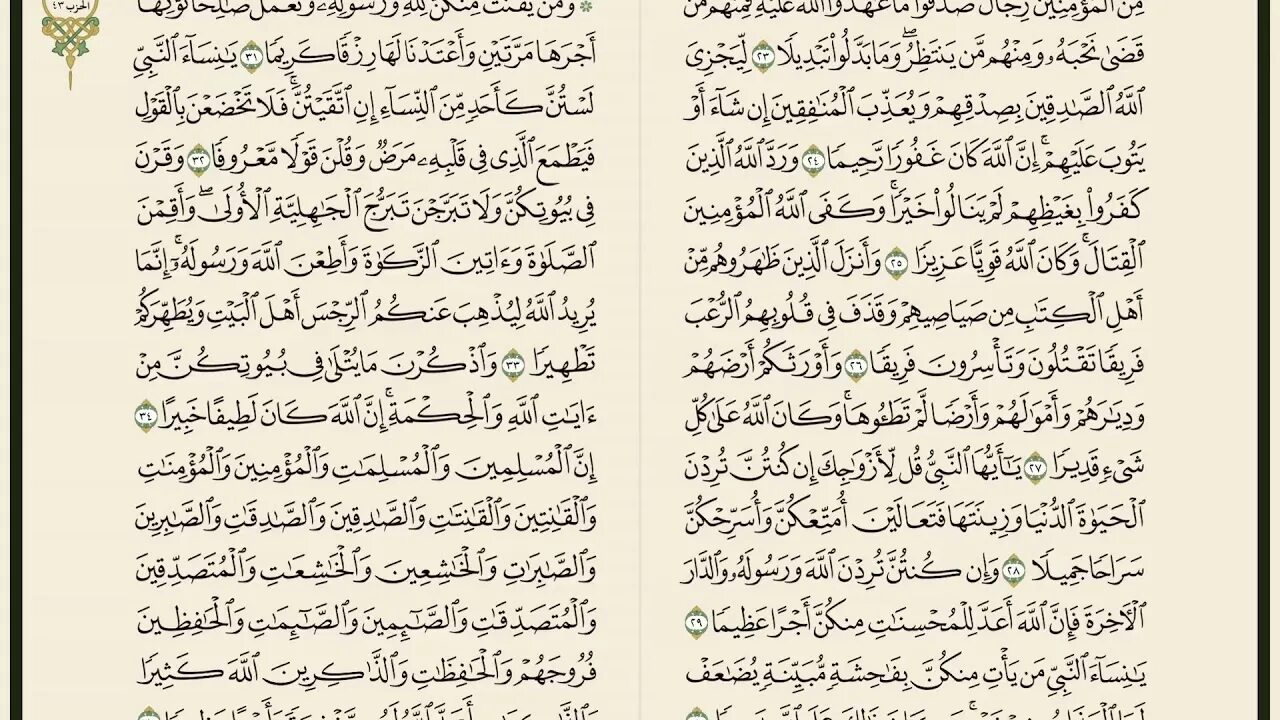 مِّنَ ٱلْمُؤْمِنِينَ رِجَالٌ صَدَقُوا۟ مَا عَٰهَدُوا۟ ٱللَّهَ عَلَيْهِ فَمِنْهُم مَّن
قَضَىٰ نَحْبَهُۥ وَمِنْهُم مَّن يَنتَظِرُ ۖ وَمَا بَدَّلُوا۟ تَبْدِيلًا ٢٣ لِّيَجْزِىَ
ٱللَّهُ ٱلصَّٰدِقِينَ بِصِدْقِهِمْ وَيُعَذِّبَ ٱلْمُنَٰفِقِينَ إِن شَآءَ أَوْ
يَتُوبَ عَلَيْهِمْ ۚ إِنَّ ٱللَّهَ كَانَ غَفُورًا رَّحِيمًا ٢٤ وَرَدَّ ٱللَّهُ ٱلَّذِينَ
كَفَرُوا۟ بِغَيْظِهِمْ لَمْ يَنَالُوا۟ خَيْرًا ۚ وَكَفَى ٱللَّهُ ٱلْمُؤْمِنِينَ
ٱلْقِتَالَ ۚ وَكَانَ ٱللَّهُ قَوِيًّا عَزِيزًا ٢٥ وَأَنزَلَ ٱلَّذِينَ ظَٰهَرُوهُم مِّنْ
أَهْلِ ٱلْكِتَٰبِ مِن صَيَاصِيهِمْ وَقَذَفَ فِى قُلُوبِهِمُ ٱلرُّعْبَ
فَرِيقًا تَقْتُلُونَ وَتَأْسِرُونَ فَرِيقًا ٢٦ وَأَوْرَثَكُمْ أَرْضَهُمْ
وَدِيَٰرَهُمْ وَأَمْوَٰلَهُمْ وَأَرْضًا لَّمْ تَطَـُٔوهَا ۚ وَكَانَ ٱللَّهُ عَلَىٰ كُلِّ
شَىْءٍ قَدِيرًا ٢٧ يَٰٓأَيُّهَا ٱلنَّبِىُّ قُل لِّأَزْوَٰجِكَ إِن كُنتُنَّ تُرِدْنَ
ٱلْحَيَوٰةَ ٱلدُّنْيَا وَزِينَتَهَا فَتَعَالَيْنَ أُمَتِّعْكُنَّ وَأُسَرِّحْكُنَّ
سَرَاحًا جَمِيلًا ٢٨ وَإِن كُنتُنَّ تُرِدْنَ ٱللَّهَ وَرَسُولَهُۥ وَٱلدَّارَ
ٱلْـَٔاخِرَةَ فَإِنَّ ٱللَّهَ أَعَدَّ لِلْمُحْسِنَٰتِ مِنكُنَّ أَجْرًا عَظِيمًا ٢٩
يَٰنِسَآءَ ٱلنَّبِىِّ مَن يَأْتِ مِنكُنَّ بِفَٰحِشَةٍ مُّبَيِّنَةٍ يُضَٰعَفْ
الحزب ٤٣
۞ وَمَن يَقْنُتْ مِنكُنَّ لِلَّهِ وَرَسُولِهِۦ وَتَعْمَلْ صَٰلِحًا نُّؤْتِهَآ
أَجْرَهَا مَرَّتَيْنِ وَأَعْتَدْنَا لَهَا رِزْقًا كَرِيمًا ٣١ يَٰنِسَآءَ ٱلنَّبِىِّ
لَسْتُنَّ كَأَحَدٍ مِّنَ ٱلنِّسَآءِ ۚ إِنِ ٱتَّقَيْتُنَّ فَلَا تَخْضَعْنَ بِٱلْقَوْلِ
فَيَطْمَعَ ٱلَّذِى فِى قَلْبِهِۦ مَرَضٌ وَقُلْنَ قَوْلًا مَّعْرُوفًا ٣٢ وَقَرْنَ
فِى بُيُوتِكُنَّ وَلَا تَبَرَّجْنَ تَبَرُّجَ ٱلْجَٰهِلِيَّةِ ٱلْأُولَىٰ ۖ وَأَقِمْنَ
ٱلصَّلَوٰةَ وَءَاتِينَ ٱلزَّكَوٰةَ وَأَطِعْنَ ٱللَّهَ وَرَسُولَهُۥٓ ۚ إِنَّمَا
يُرِيدُ ٱللَّهُ لِيُذْهِبَ عَنكُمُ ٱلرِّجْسَ أَهْلَ ٱلْبَيْتِ وَيُطَهِّرَكُمْ
تَطْهِيرًا ٣٣ وَٱذْكُرْنَ مَا يُتْلَىٰ فِى بُيُوتِكُنَّ مِنْ
ءَايَٰتِ ٱللَّهِ وَٱلْحِكْمَةِ ۚ إِنَّ ٱللَّهَ كَانَ لَطِيفًا خَبِيرًا ٣٤
إِنَّ ٱلْمُسْلِمِينَ وَٱلْمُسْلِمَٰتِ وَٱلْمُؤْمِنِينَ وَٱلْمُؤْمِنَٰتِ
وَٱلْقَٰنِتِينَ وَٱلْقَٰنِتَٰتِ وَٱلصَّٰدِقِينَ وَٱلصَّٰدِقَٰتِ وَٱلصَّٰبِرِينَ
وَٱلصَّٰبِرَٰتِ وَٱلْخَٰشِعِينَ وَٱلْخَٰشِعَٰتِ وَٱلْمُتَصَدِّقِينَ
وَٱلْمُتَصَدِّقَٰتِ وَٱلصَّٰٓئِمِينَ وَٱلصَّٰٓئِمَٰتِ وَٱلْحَٰفِظِينَ
فُرُوجَهُمْ وَٱلْحَٰفِظَٰتِ وَٱلذَّٰكِرِينَ ٱللَّهَ كَثِيرًا